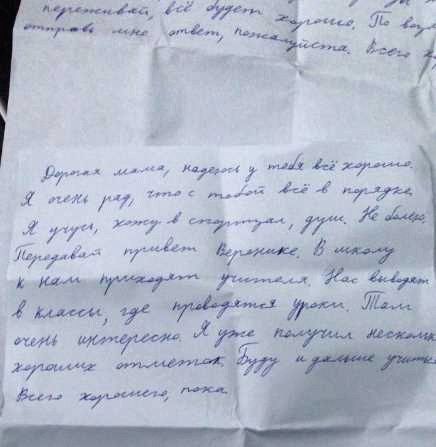 переживай, всё будет хорошо. По возм
отправь мне ответ, пожалуйста. Всего
Дорогая мама, надеюсь у тебя всё хорошо.
Я очень рад, что с тобой всё в порядке.
Я учусь, хожу в спортзал, душ. Не болею.
Передавай привет Веронике. В школу
к нам приходят учителя. Нас выводят
в классы, где проводятся уроки. Там
очень интересно. Я уже получил несколь
хороших отметок. Буду и дальше учить
Всего хорошего, пока